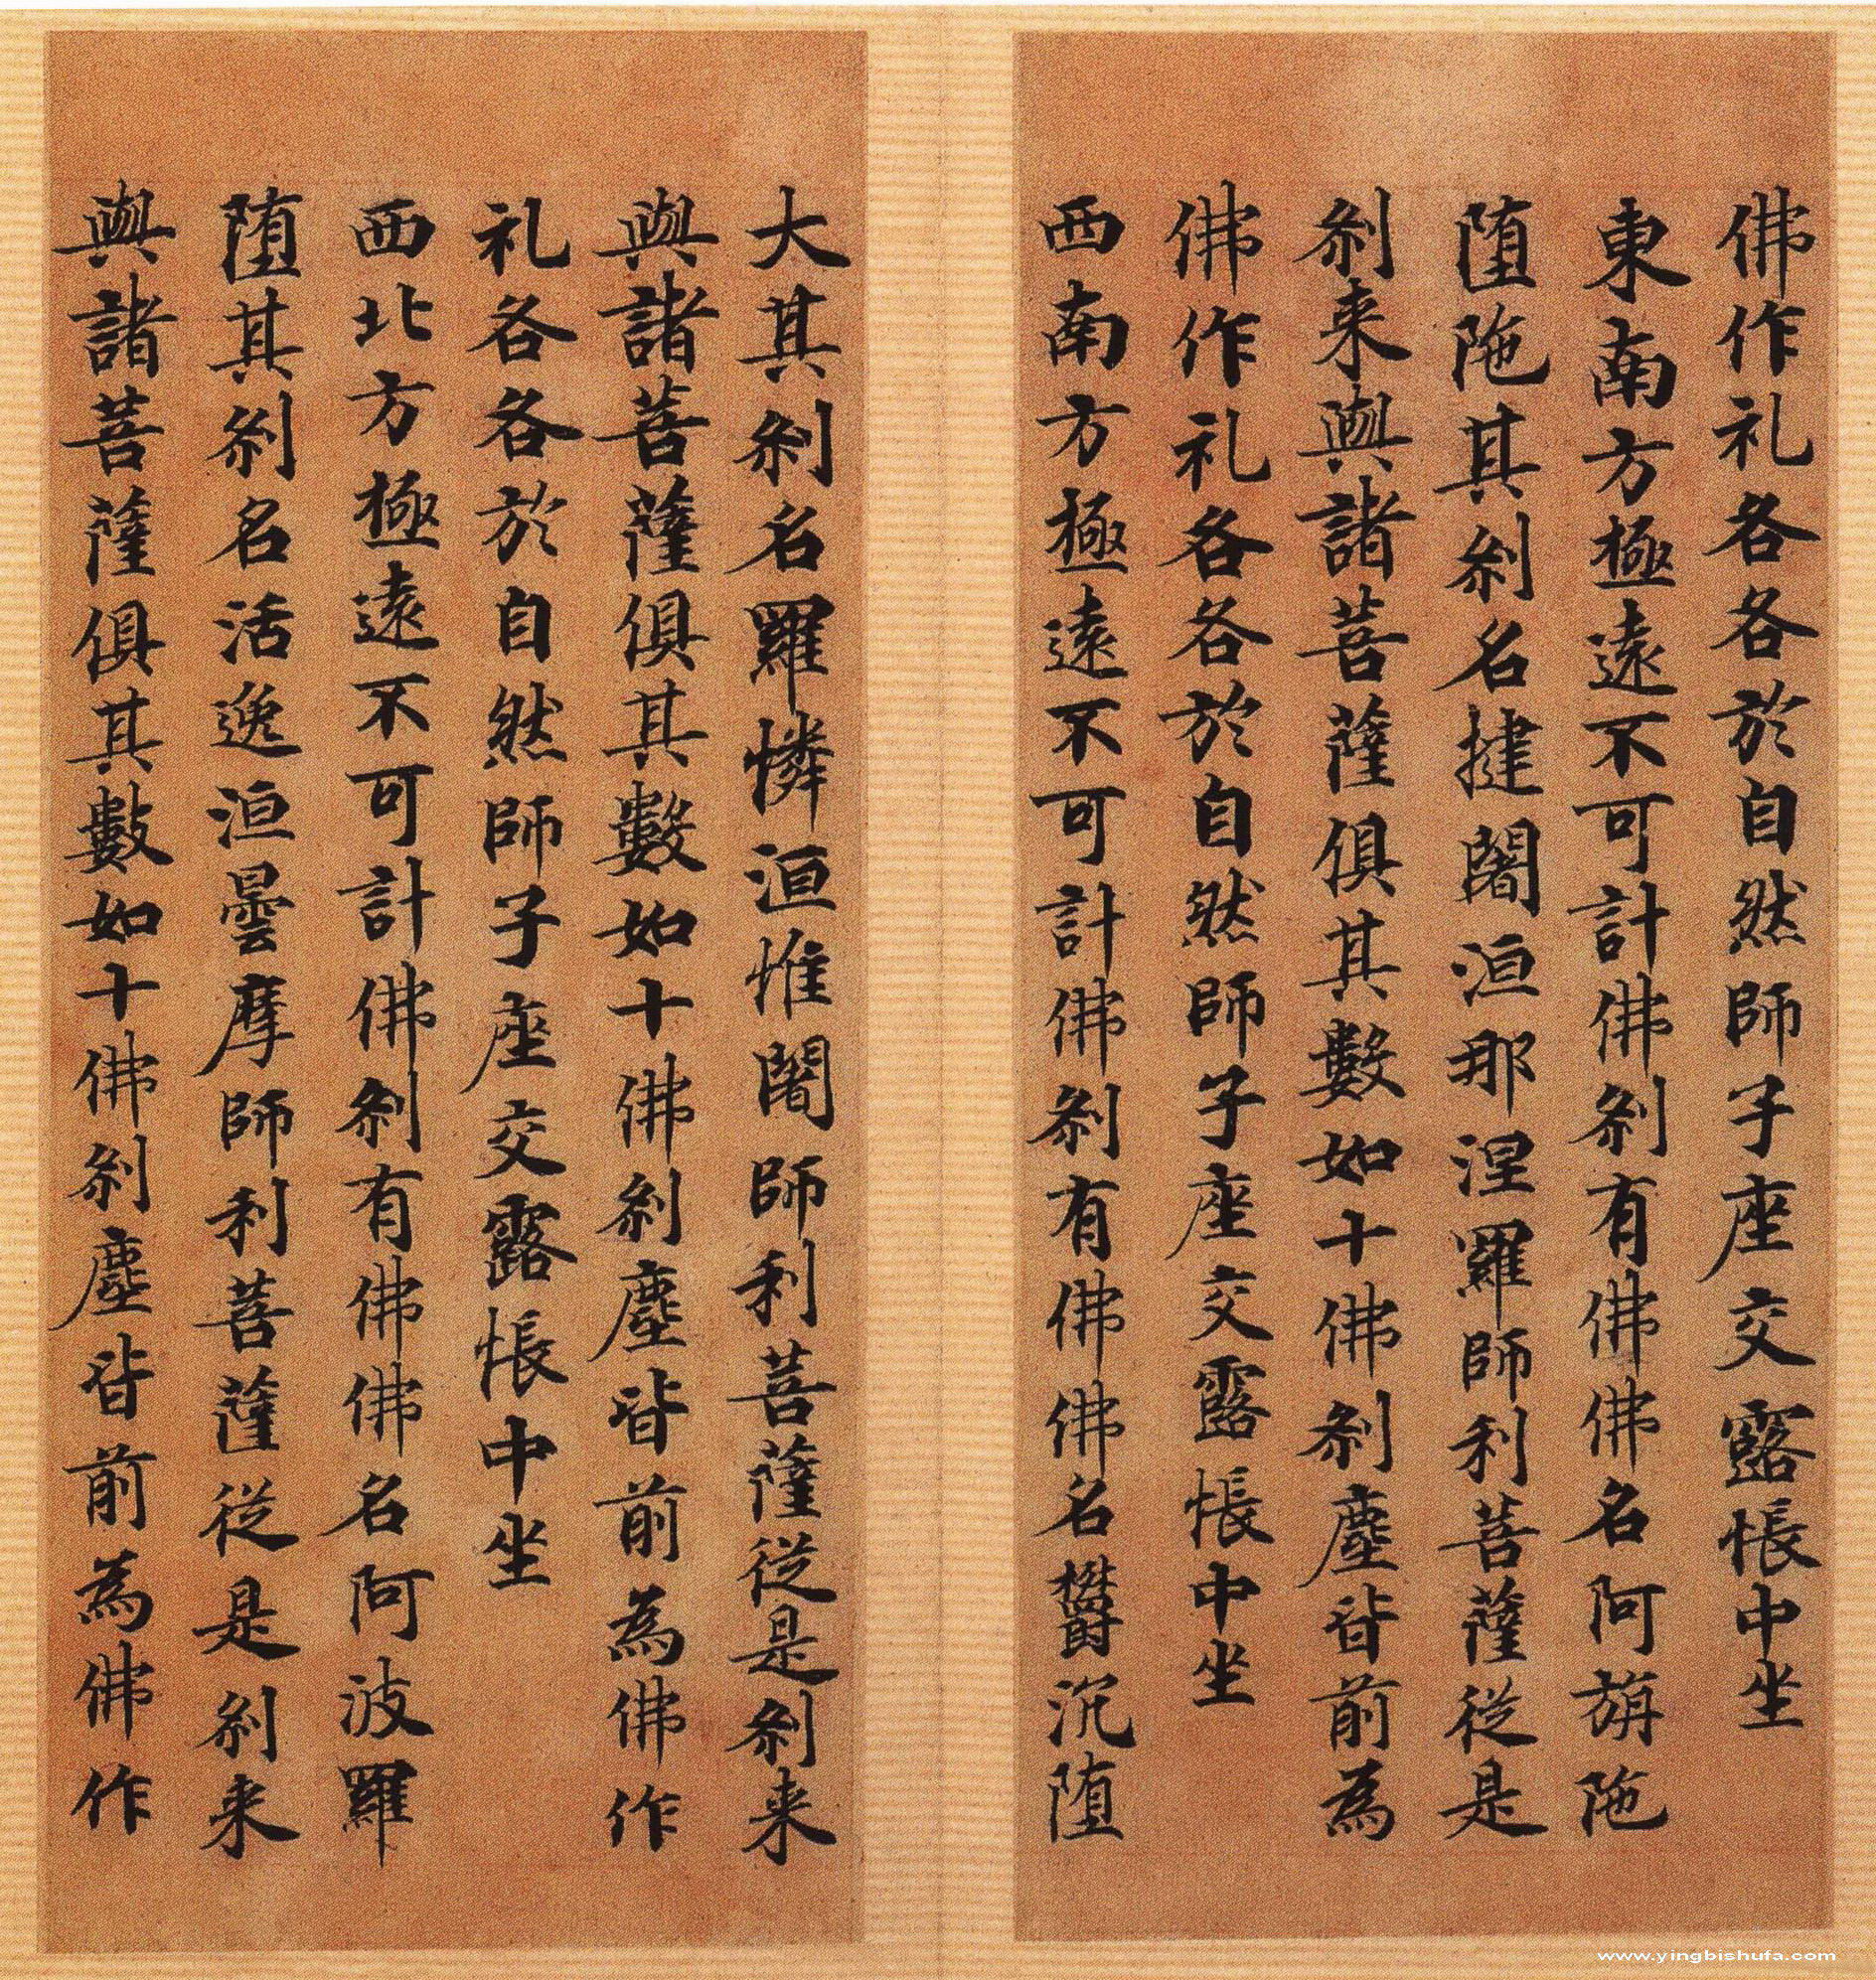 佛作礼各各於自然師子座交露帳中坐
東南方極遠不可計佛剎有佛佛名阿旃陁
堕陁其剎名揵闍洹那涅羅師利菩薩從是
剎来與諸菩薩俱其數如十佛剎塵皆前為
佛作礼各各於自然師子座交露帳中坐
西南方極遠不可計佛剎有佛佛名欝沉堕
大其剎名羅憐洹惟闍師利菩薩從是剎来
與諸菩薩俱其數如十佛剎塵皆前為佛作
礼各各於自然師子座交露帳中坐
西北方極遠不可計佛剎有佛佛名阿波羅
堕其剎名活逸洹曇摩師利菩薩從是剎来
與諸菩薩俱其數如十佛剎塵皆前為佛作
www.yingbishufa.com